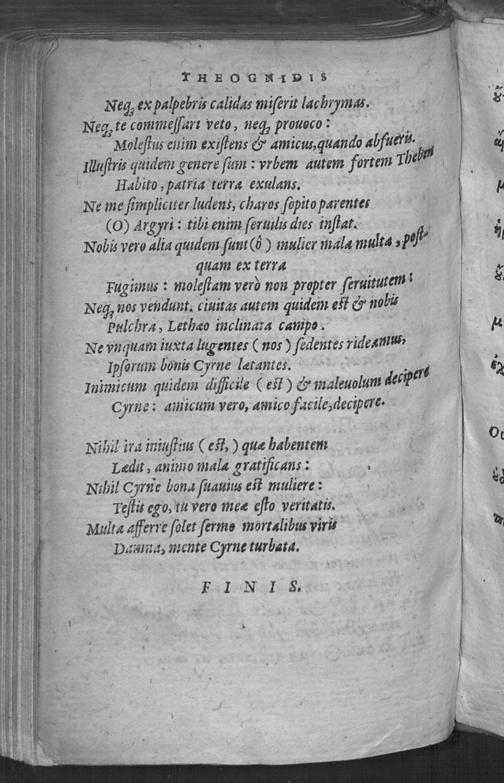 THEOGNIDIS
Neq; ex palpebris calidas miserit lachrymas.
Neq; te commessari veto, neq; prouoco:
Molestus enim existens & amicus, quando absueris.
Illustris quidem genere sum: vrbem autem fortem Theben
Habito, patria terra exulans.
Ne me simpliciter ludens, charos sopito parentes
(O) Argyri: tibi enim seruilis dies instat.
Nobis vero alia quidem sunt (ô) mulier mala multa, post-
quam ex terra
Fugimus: molestam verò non propter seruitutem:
Neq; nos vendunt. ciuitas autem quidem est & nobis
Pulchra, Lethæo inclinata campo.
Ne vnquam iuxta lugentes (nos) sedentes rideamus,
Ipsorum bonis Cyrne lætantes.
Inimicum quidem difficile (est) & maleuolum decipere
Cyrne: amicum vero, amico facile, decipere.
Nihil ira iniustius (est,) quæ habentem
Lædit, animo mala gratificans:
Nihil Cyrne bona suauius est muliere:
Testis ego, tu vero meæ esto veritatis.
Multa afferre solet sermo mortalibus viris
Damna, mente Cyrne turbata.
FINIS.